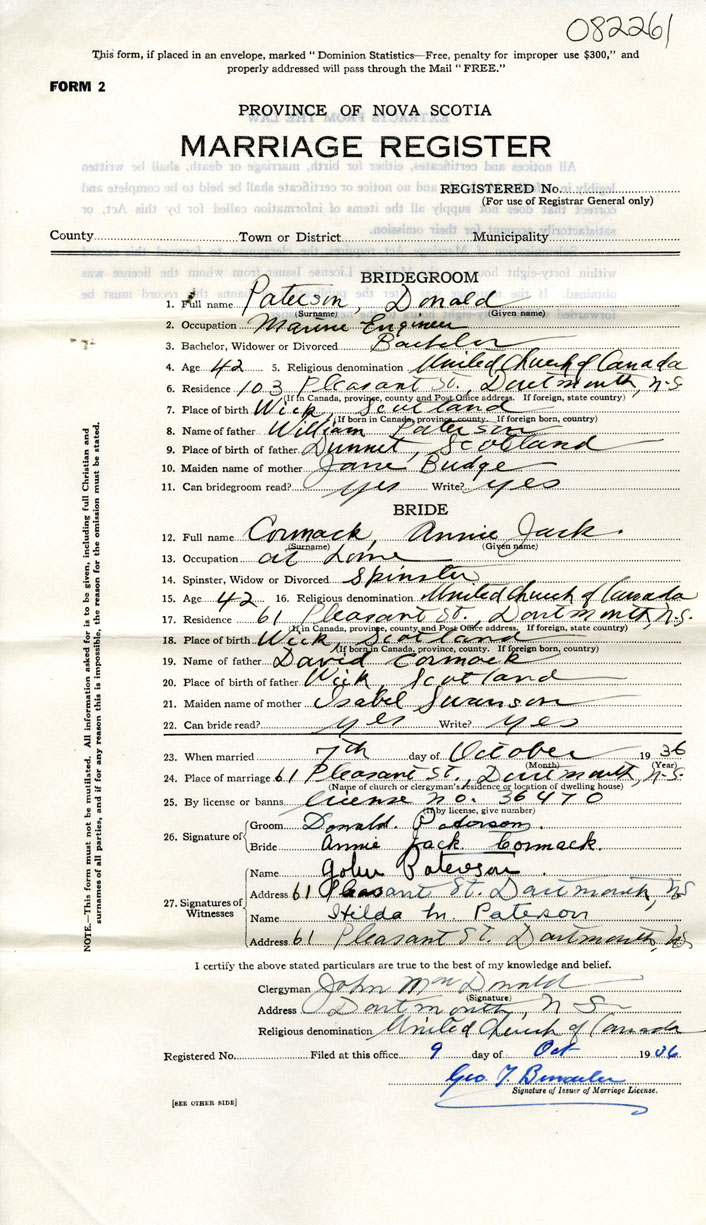 082261
This form, if placed in an envelope, marked "Dominion Statistics—Free, penalty for improper use $300," and
properly addressed will pass through the Mail "FREE."
FORM 2
PROVINCE OF NOVA SCOTIA
MARRIAGE REGISTER
REGISTERED No.
(For use of Registrar General only)
County Town or District Municipality
BRIDEGROOM
1. Full name Paterson, Donald
(Surname) (Given name)
2. Occupation Marine Engineer
3. Bachelor, Widower or Divorced Bachelor
4. Age 42 5. Religious denomination United Church of Canada
6. Residence 103 Pleasant St., Dartmouth, N.S.
(If in Canada, province, county and Post Office address. If foreign, state country)
7. Place of birth Wick, Scotland
(If born in Canada, province, county. If foreign born, country)
8. Name of father William Paterson
9. Place of birth of father Dunnet, Scotland
10. Maiden name of mother Jane Budge
11. Can bridegroom read? yes Write? yes
BRIDE
12. Full name Cormack, Annie Jack.
(Surname) (Given name)
13. Occupation at home
14. Spinster, Widow or Divorced Spinster
15. Age 42 16. Religious denomination United Church of Canada
17. Residence 61 Pleasant St., Dartmouth, N.S.
(If in Canada, province, county and Post Office address. If foreign, state country)
18. Place of birth Wick Scotland
(If born in Canada, province, county. If foreign born, country)
19. Name of father David Cormack
20. Place of birth of father Wick, Scotland
21. Maiden name of mother Isabel Swanson
22. Can bride read? yes Write? yes
23. When married 7th day of October 1936
(Month) (Year)
24. Place of marriage 61 Pleasant St., Dartmouth, N.S.
(Name of church or clergyman's residence or location of dwelling house)
25. By license or banns license no. 36470
(If by license, give number)
26. Signature of
Groom Donald Paterson.
Bride Annie Jack Cormack.
27. Signatures of Witnesses
Name John Paterson.
Address 61 Pleasant St. Dartmouth, NS
Name Hilda M. Paterson
Address 61 Pleasant St. Dartmouth, NS
I certify the above stated particulars are true to the best of my knowledge and belief.
Clergyman John MacDonald
(Signature)
Address Dartmouth, N.S.
Religious denomination United Church of Canada
Registered No. Filed at this office 9 day of Oct 1936
Geo. T.
Signature of Issuer of Marriage License.
[SEE OTHER SIDE]
NOTE.—This form must not be mutilated. All information asked for is to be given, including full Christian and
surnames of all parties, and if for any reason this is impossible, the reason for the omission must be stated.